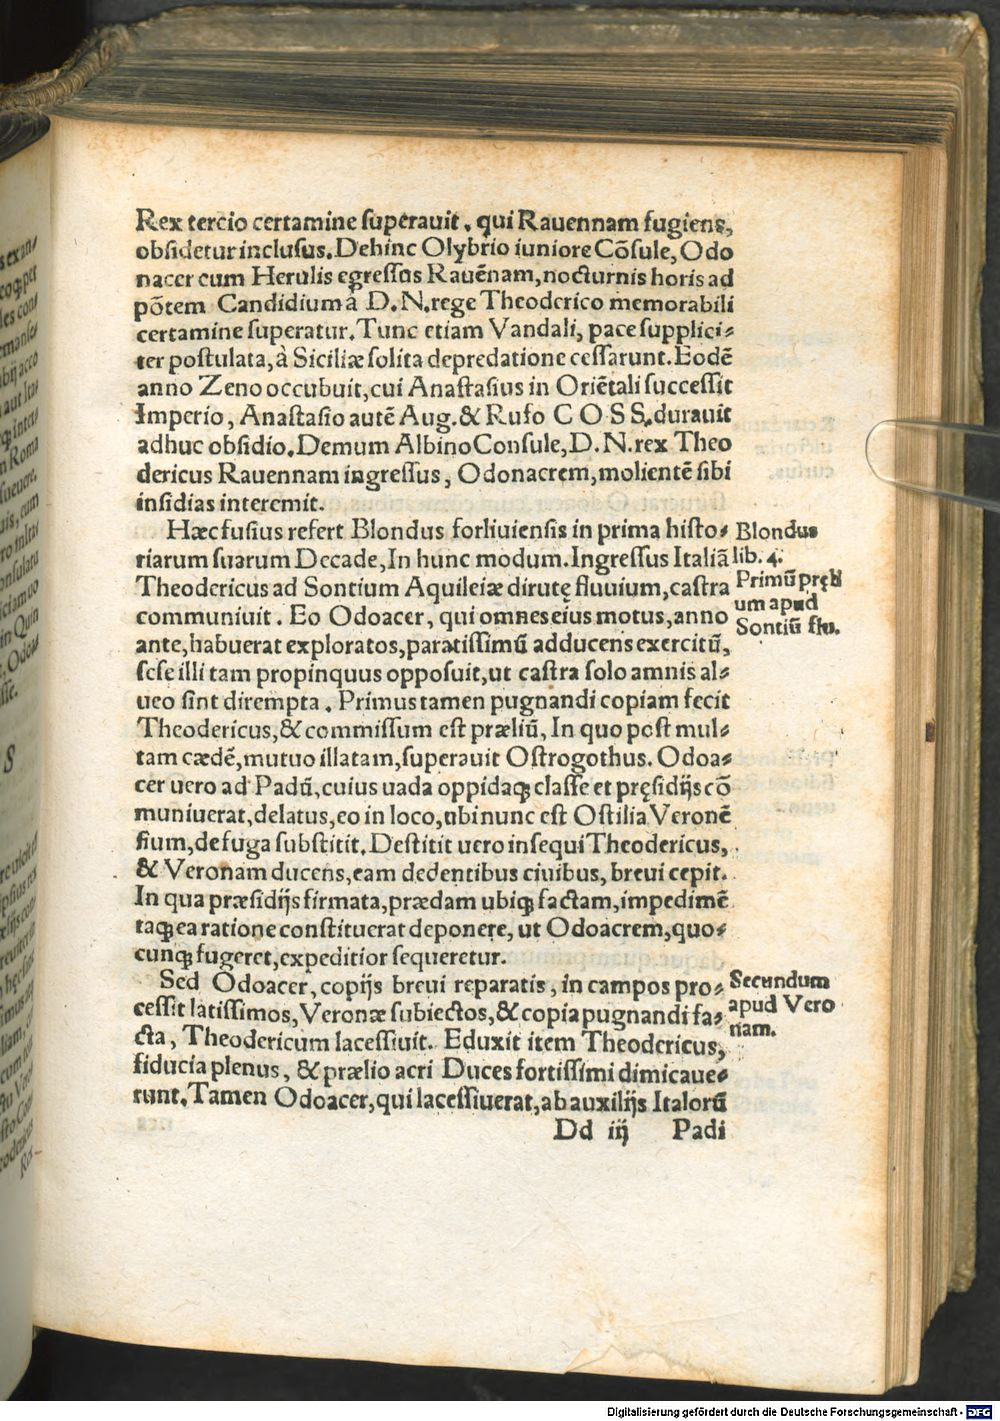 Rex tercio certamine superauit, qui Rauennam fugiens,
obsidetur inclusus. Dehinc Olybrio iuniore Cõsule, Odo
nacer cum Herulis egressus Rauẽnam, nocturnis horis ad
põtem Candidium â D.N. rege Theoderico memorabili
certamine superatur. Tunc etiam Vandali, pace supplici⸗
ter postulata, â Siciliæ solita depredatione cessarunt. Eodẽ
anno Zeno occubuit, cui Anastasius in Oriẽtali successit
Imperio, Anastasio autẽ Aug. & Rufo COSS. durauit
adhuc obsidio. Demum Albino Consule, D.N. rex Theo
dericus Rauennam ingressus, Odonacrem, molientẽ sibi
insidias interemit.
Hæc fusius refert Blondus forliuiensis in prima histo⸗
riarum suarum Decade, In hunc modum. Ingressus Italiã
Theodericus ad Sontium Aquileiæ dirutę fluuium, castra
communiuit. Eo Odoacer, qui omnes eius motus, anno
ante, habuerat exploratos, paratissimũ adducens exercitũ,
sese illi tam propinquus opposuit, ut castra solo amnis al⸗
ueo sint dirempta. Primus tamen pugnandi copiam fecit
Theodericus, & commissum est præliũ, In quo post mul⸗
tam cædẽ, mutuo illatam, superauit Ostrogothus. Odoa⸗
cer uero ad Padũ, cuius uada oppidaq; classe et pręsidijs cõ
muniuerat, delatus, eo in loco, ubi nunc est Ostilia Veronẽ
sium, de fuga substitit. Destitit uero insequi Theodericus,
& Veronam ducens, eam dedentibus ciuibus, breui cepit.
In qua præsidijs firmata, prædam ubiq; factam, impedimẽ
taq; ea ratione constituerat deponere, ut Odoacrem, quo⸗
cunq; fugeret, expeditior sequeretur.
Sed Odoacer, copijs breui reparatis, in campos pro⸗
cessit latissimos, Veronæ subiectos, & copia pugnandi fa⸗
cta, Theodericum lacessiuit. Eduxit item Theodericus,
fiducia plenus, & prælio acri Duces fortissimi dimicaue⸗
runt. Tamen Odoacer, qui lacessiuerat, ab auxilijs Italorũ
Dd iij Padi
Blondus
lib. 4.
Primũ pręli
um apud
Sontiũ flu.
Secundum
apud Vero
nam.
Digitalisierung gefördert durch die Deutsche Forschungsgemeinschaft - DFG